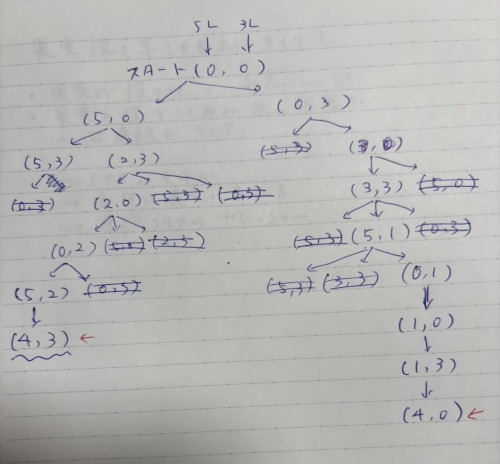 5L 3L
スタート(0, 0)
(5, 0) (0, 3)
(5, 3) (2, 3) (5, 3) (3, 0)
(0, 3) (2, 0) (5, 3) (0, 3) (3, 3) (5, 0)
(0, 2) (5, 0) (2, 3) (5, 3) (5, 1) (0, 3)
(5, 2) (0, 3) (5, 3) (3, 3) (0, 1)
(4, 3) (1, 0)
(1, 3)
(4, 0)